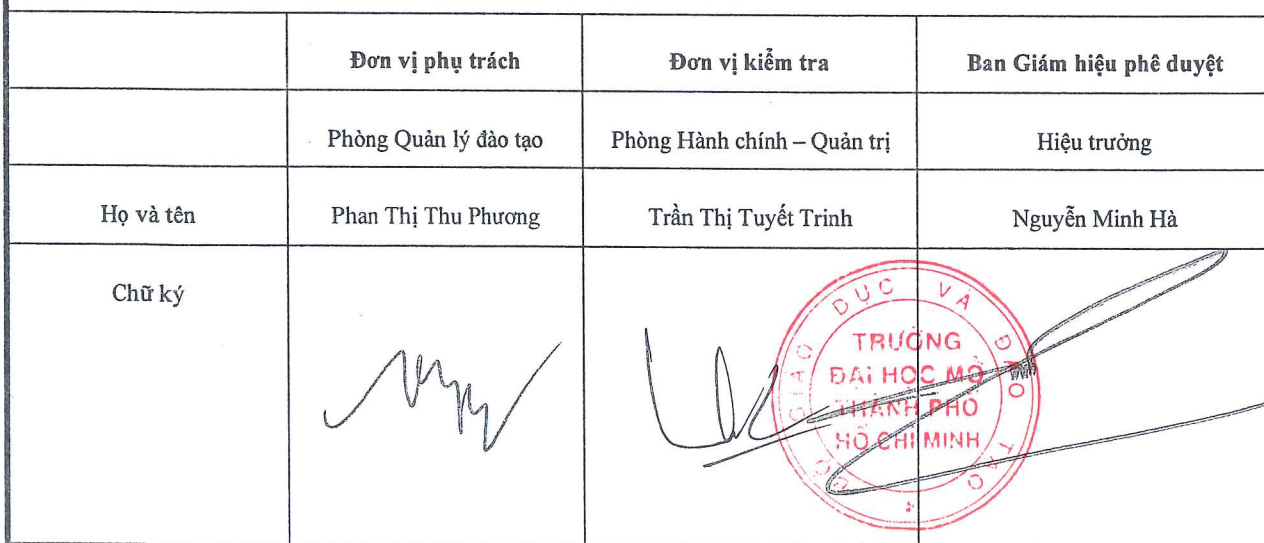 Đơn vị phụ trách Đơn vị kiểm tra Ban Giám hiệu phê duyệt
Phòng Quản lý đào tạo Phòng Hành chính – Quản trị Hiệu trưởng
Họ và tên Phan Thị Thu Phương Trần Thị Tuyết Trinh Nguyễn Minh Hà
Chữ ký
BỘ GIÁO DỤC VÀ ĐÀO TẠO
TRƯỜNG
ĐẠI HỌC MỞ
THÀNH PHỐ
HỒ CHÍ MINH